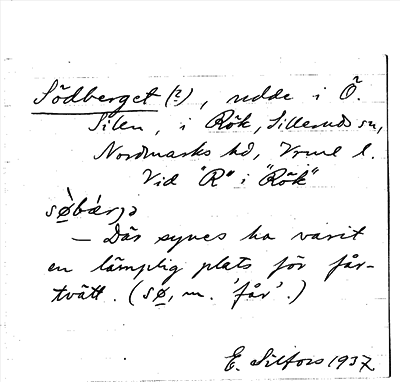 Södberget (?), udde i Ö.
Silen, i Rök, Silleruds sn,
Nordmarks hd, Vrml l.
Vid "R" i "Rök"
sø̀bæ̀rjə
— Där synes ha varit
en lämplig plats för får-
tvätt. (sø, m. 'får'.)
E. Silfors 1937